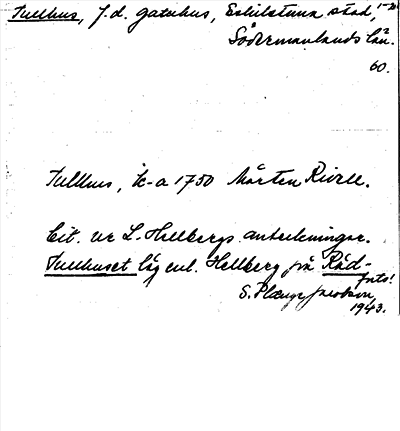 Tullhus, f.d. gatuhus, Eskilstuna stad,
Södermanlands län.
60.
Tullhus, k-a 1750 Mårten Rivell.
Cit. ur L. Hellbergs anteckningar.
Tullhuset låg enl. Hellberg på Råd-
S. Plænge Jacobson,
1943.